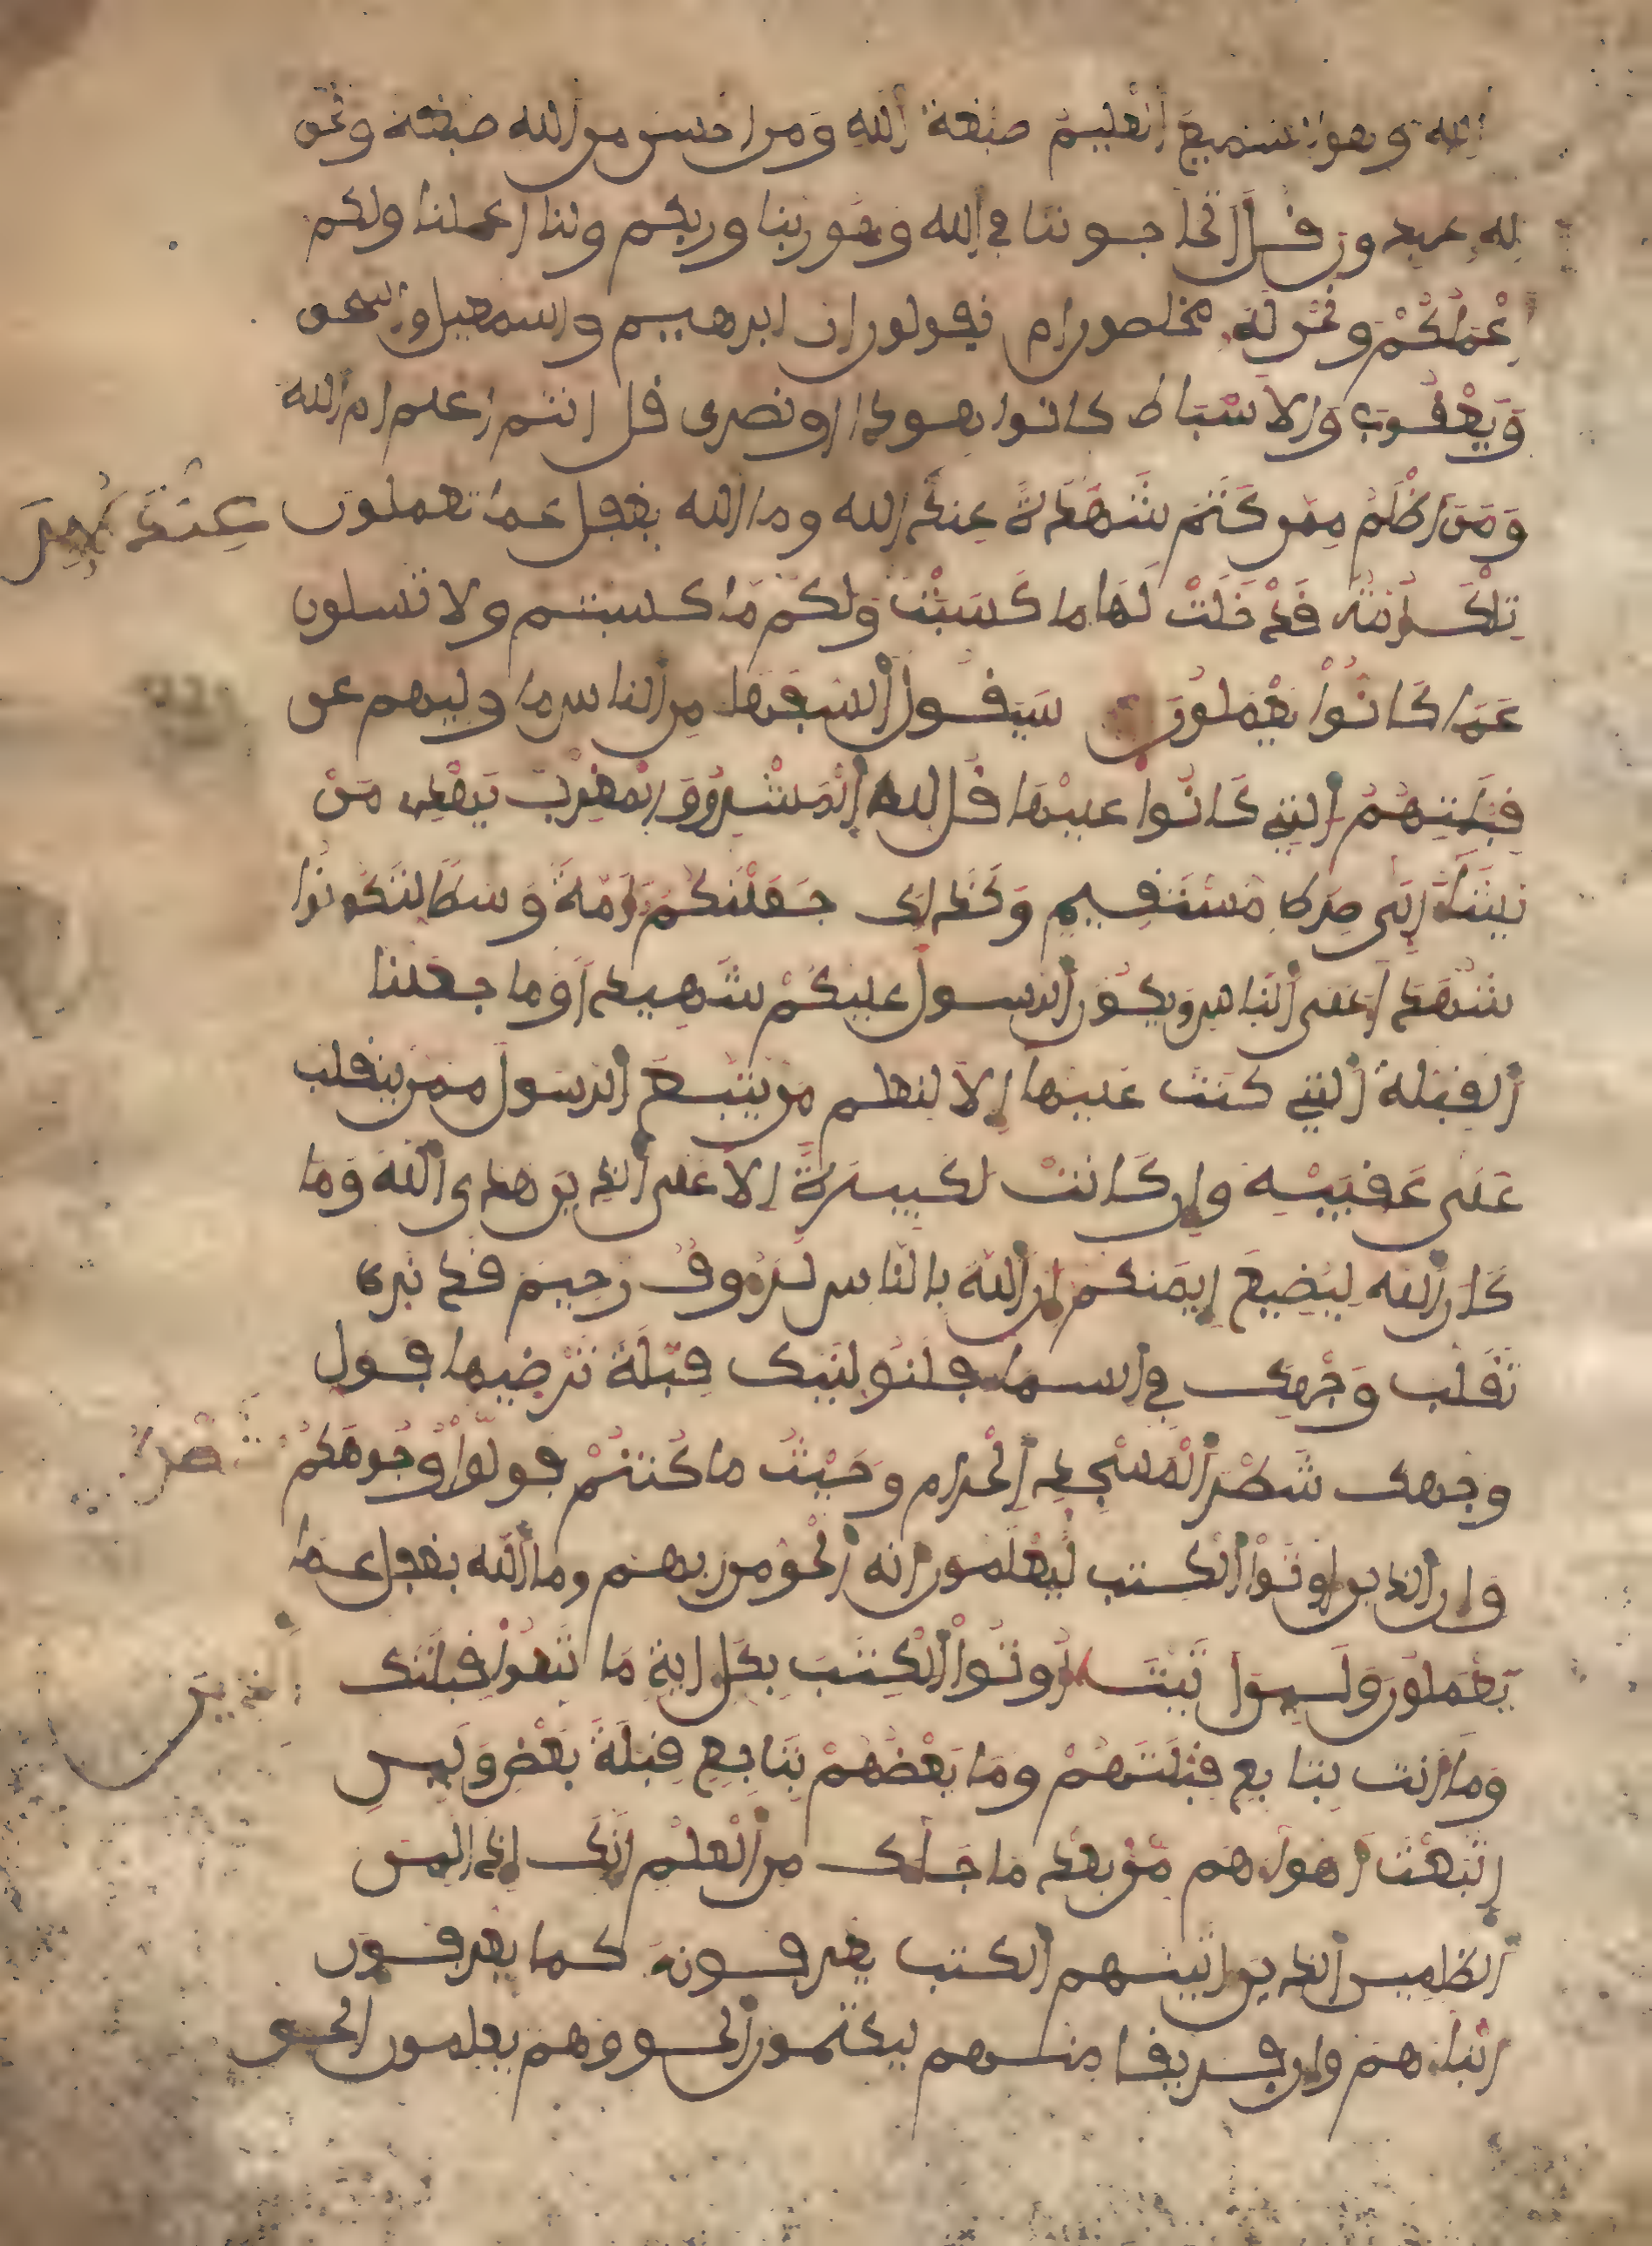 الله وهو السميع العليم صبغة الله ومن احسن من الله صبغة ونحن
له عبدون قل اتحاجوننا في الله وهو ربنا وربكم ولنا اعملنا ولكم
اعملكم ونحن له مخلصون ام يقولون ان ابرهيم واسمعيل واسحق
ويعقوب والاسباط كانوا هودا او نصرى قل انتم اعلم ام الله
ومن اظلم ممن كتم شهدة عنده من الله وما الله بغفل عما تعملون
تلك امة قد خلت لها ما كسبت ولكم ما كسبتم ولا تسلون
عما كانوا يعملون سيقول السفها من الناس ما وليهم عن
قبلتهم التي كانوا عليها قل لله المشرق والمغرب يهدي من
يشا الى صرط مستقيم وكذلك جعلنكم امة وسطا لتكونوا
شهدا على الناس ويكون الرسول عليكم شهيدا وما جعلنا
القبلة التي كنت عليها الا لنعلم من يتبع الرسول ممن ينقلب
على عقبيه وان كانت لكبيرة الا على الذين هدى الله وما
كان الله ليضيع ايمنكم ان الله بالناس لرءوف رحيم قد نرى
تقلب وجهك في السما فلنولينك قبلة ترضيها فول
وجهك شطر المسجد الحرام وحيث ما كنتم فولوا وجوهكم شطره
وان الذين اوتوا الكتب ليعلمون انه الحق من ربهم وما الله بغفل عما
يعملون ولين اتيت اوتوا الكتب بكل اية ما تبعوا قبلتك الذين
وما انت بتابع قبلتهم وما بعضهم بتابع قبلة بعض ولين
اتبعت اهواهم من بعد ما جاك من العلم انك اذا لمن
الظلمين الذين اتينهم الكتب يعرفونه كما يعرفون
ابناهم وان فريقا منهم ليكتمون الحق وهم يعلمون الحق